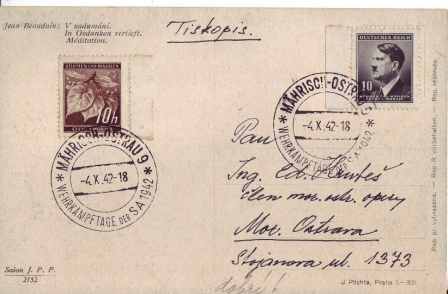 Jean Beauduin: V zadumání.
In Gedanken vertieft.
Méditation.
Tiskopis.
BÖHMEN UND MÄHREN
10h
ČECHY A MORAVA
DEUTSCHES REICH
10
MÄHRISCH-OSTRAU 9
-4.X.42-18
* WEHRKAMPFTAGE DER SA 1942 *
MÄHRISCH-OSTRAU
-4.X.42-18
* WEHRKAMPFTAGE DER SA 1942 *
Pan
Ing. Ed.
člen mor. slez. opery
Mor. Ostrava
Stojanova ul. 1373
Salon J. P. P.
2152
dobré!
J. Plichta, Praha I.-321.
Rep. pr. vyhrazeno. — Rep. R. vorbehalten. — Rep. réservée.